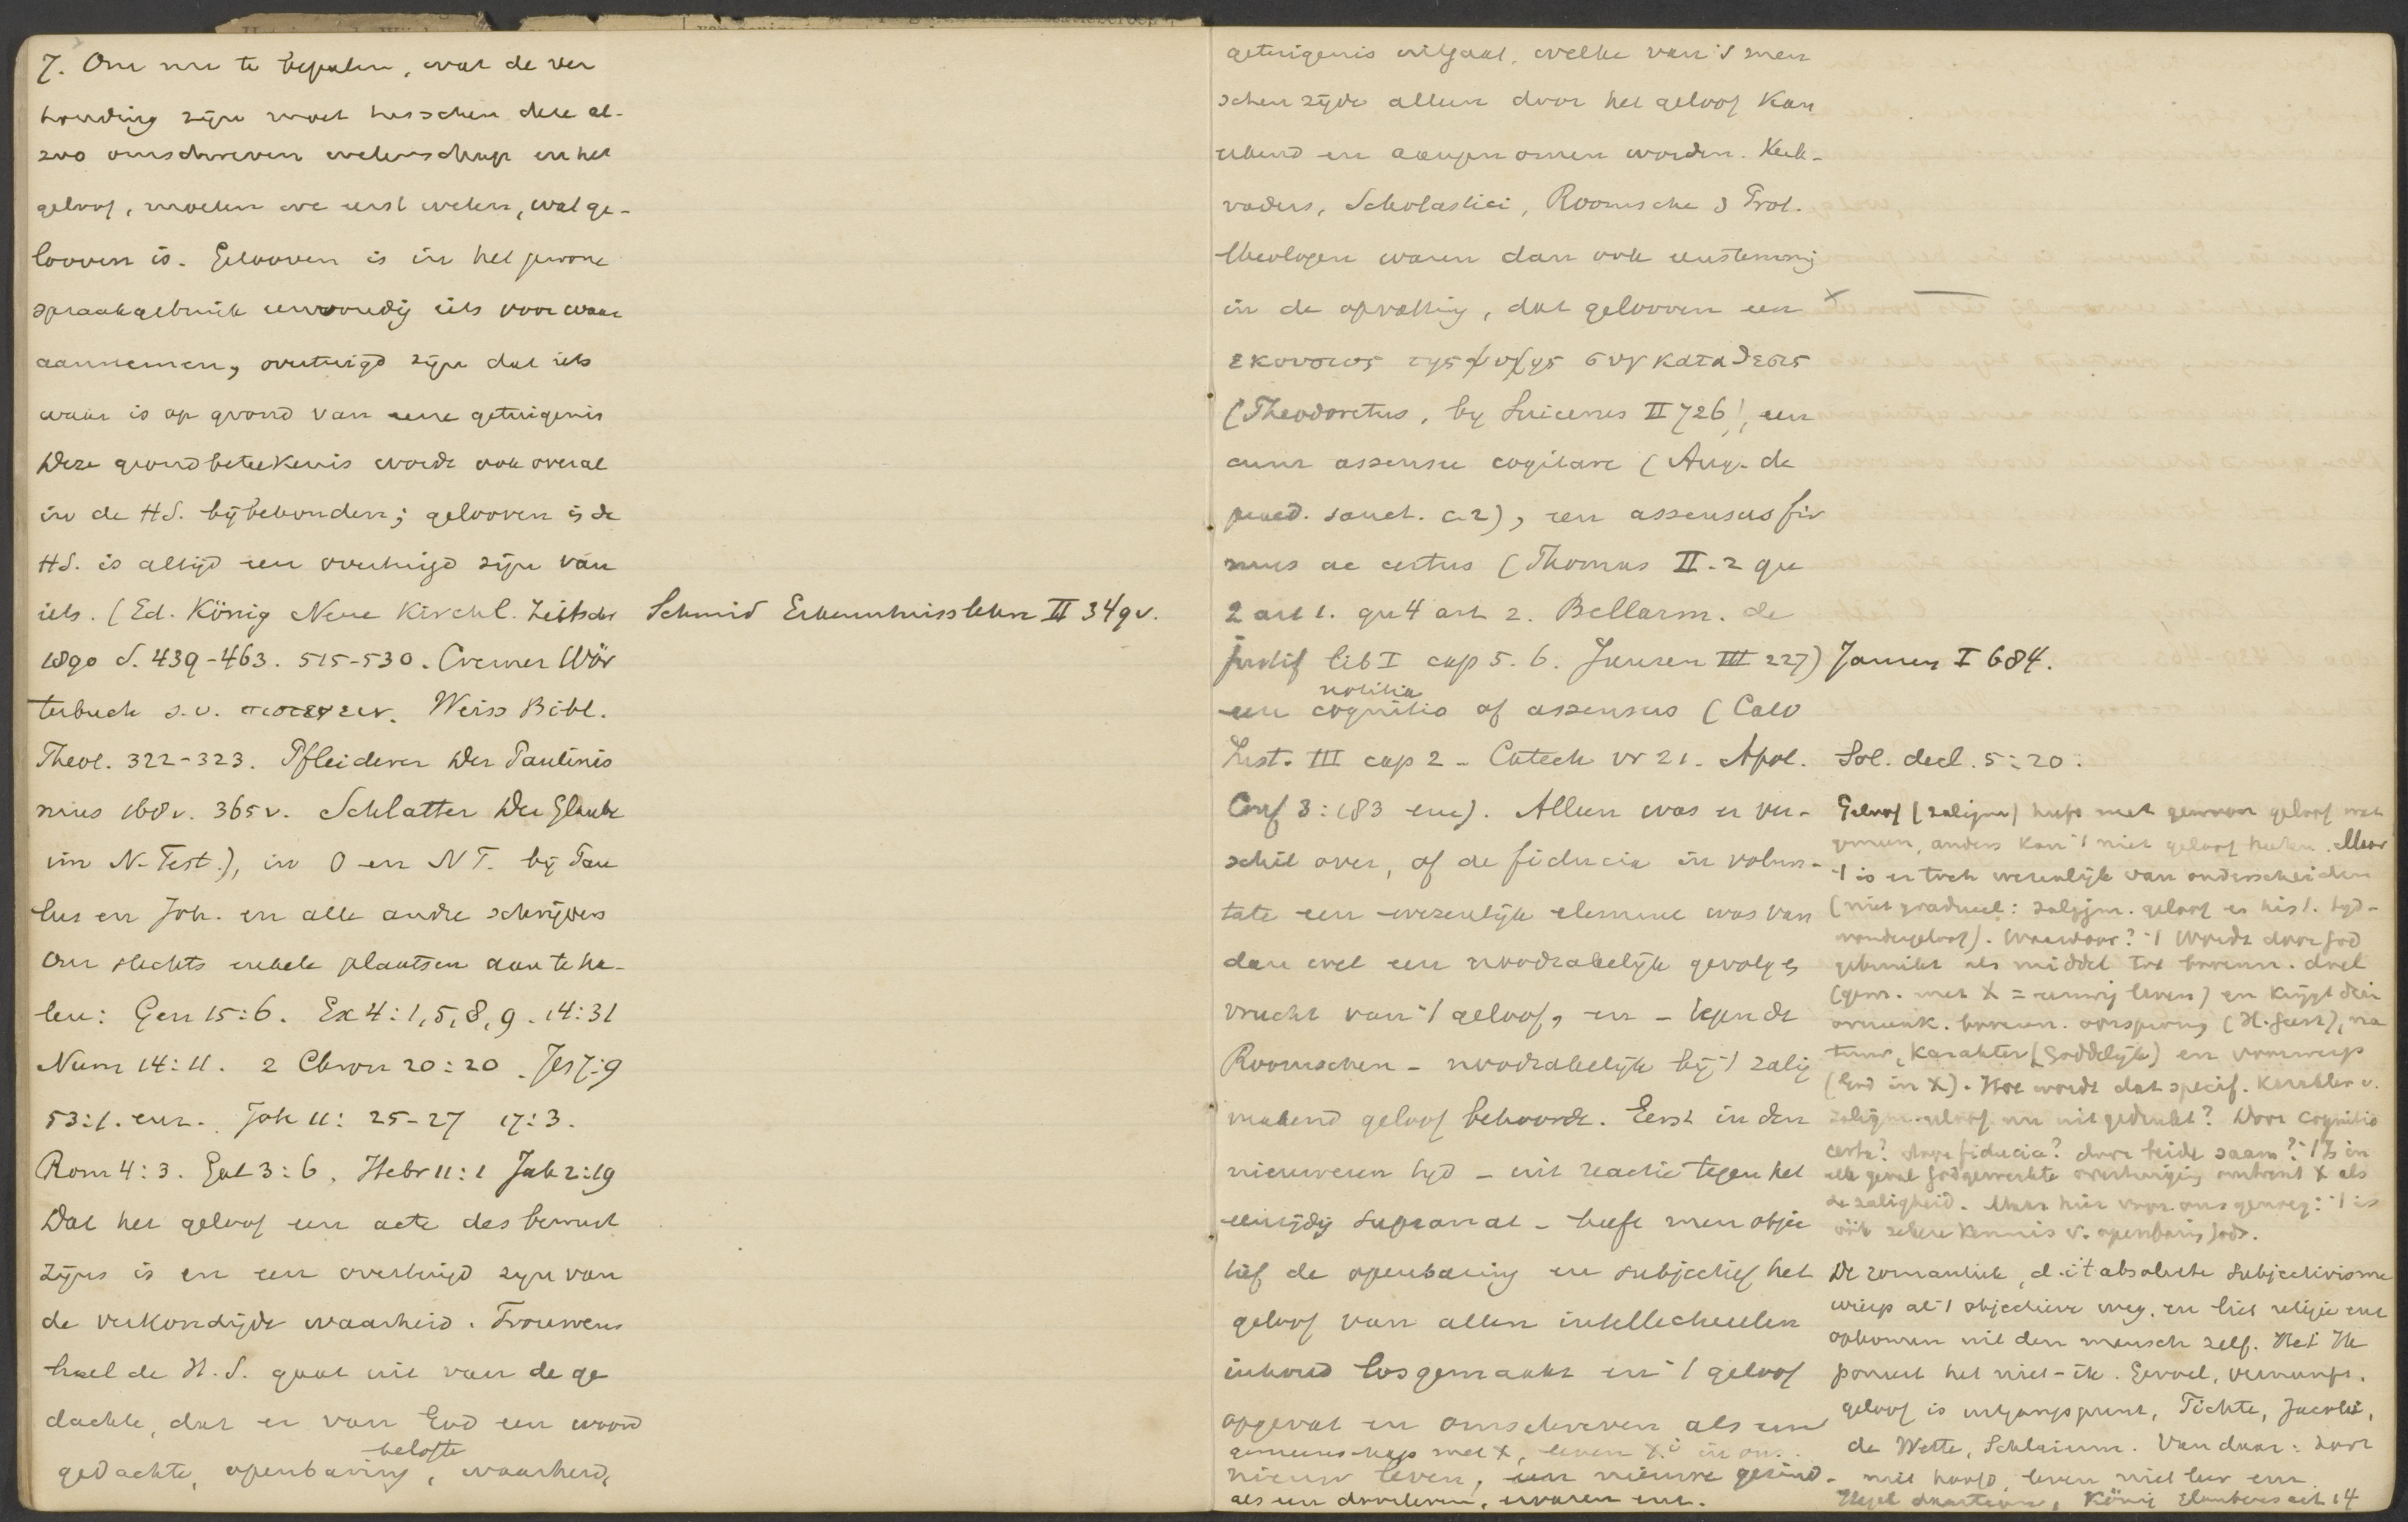 7. Om nu te bepalen, wat de ver
houding zijn moet tusschen deze al-
zoo omschreven wetenschap en het
geloof, moeten we eerst weten, wat ge-
looven is. Gelooven is in het gewone
spraakgebruik eenvoudig iets voor waar
aannemen, overtuigd zijn dat iets
waar is op grond van eene getuigenis
Deze grondbeteekenis wordt ook overal
in de HS. bijbehouden; gelooven i/d
HS. is altijd een overtuigd zijn van
iets. (Ed. König Neue Kirchl. Zeitschr
1890 S. 439-463. 515-530. Cremer Wör
terbuch s.v. πιστευειν. Weiss Bibl.
Theol. 322-323. Pfleiderer Der Paulinis
mus 168v. 365v. Schlatter Der Glaube
im N. Test.), in O en NT. bij Pau
lus en Joh. en alle andre schrijvers
Om slechts enkele plaatsen aan te ha-
len: Gen 15:6. Ex 4:1,5,8,9. 14:31
Num 14:11. 2 Chron 20:20. Jes 7:9
53:1. enz. Joh 11: 25-27 17:3.
Rom 4:3. Gal 3:6, Hebr 11:1 Jak 2:19
Dat het geloof een acte des bewust
zijns is en een overtuigd zijn van
de verkondigde waarheid. Trouwens
heel de H.S. gaat uit van de ge
dachte, dat er van God een woord
belofte
gedachte, openbaring, waarheid,
Schmid Erkenntnisslehre II 349v.
getuigenis uitgaat, welke van 's men
schen zijde alleen door het geloof kan
erkend en aangenomen worden. Kerk-
vaders, Scholastici, Roomsche & Prot.
theologen waren dan ook eenstemmig
in de opvatting, dat gelooven een
εκουσιος της ψυχης συγκαταθεσις
(Theodoretus, by Suicerus II 726), een
cum assensu cogitare (Aug. de
praed. sanct. c. 2), een assensus fir
mus ac certus (Thomas II. 2 qu
2 art 1. qu 4 art 2. Bellarm. de
justif lib I cap 5. 6. Jansen III 227)
notitia
een cognitio of assensus (Calv
Inst. III cap 2 - Catech vr 21. Apol.
Conf 3: 183 enz). Alleen was er ver-
schil over, of de fiducia in volun-
tate een wezenlijk element was van
dan wel een noodzakelijk gevolg &
vrucht van 't geloof, en - tegen de
Roomschen - noodzakelijk bij 't zalig
makend geloof behoorde. Eerst in den
nieuweren tijd - uit reactie tegen het
eenzijdig supranat - heeft men objec
tief de openbaring en subjectief het
geloof van allen intellectueelen
inhoud losgemaakt en 't geloof
opgevat en omschreven als een
gemeenschap met X, leven X.i in ons.
nieuw leven, een nieuwe gezind-
als een doorleven, ervaren enz.
x
Jansen I 684.
Sol. decl. 5:20.
Geloof (zaligm) heeft met gewoon geloof wat
gemeen, anders kon 't niet geloof heeten. Maar
't is er toch wezenlijk van onderscheiden
(niet gradueel: zaligm. geloof en hist. tijd-
wondergeloof). Waardoor? 't Wordt door God
gebruikt als middel tot bovenn. doel
(gem. met X = eeuwig leven) en krijgt dien
overeenk. bovenn. oorsprong (H. Geest), na
tuur, karakter (Goddelijk) en voorwerp
(God in X). Hoe wordt dat specif. karakter v.
zaligm. geloof nu uitgedrukt? Door cognitio
certa? door fiducia? door beide saam? 't Is in
elk geval Godgewerkte overtuiging omtrent X als
de zaligheid. Maar hier voor ons genoeg: 't is
óók zekere kennis v. openbaring Gods.
De romantiek, d.i. 't absolute subjectivisme
wierp al 't objectieve weg, en liet religie enz
opkomen uit den mensch zelf. Het Ik
poneert het niet-ik. Gevoel, vernunft,
geloof is uitgangspunt, Fichte, Jacobi,
de Wette, Schleierm. Van daar: door
niet hoofd, leven niet leer enz.
Hegel daartegen, König Glaubensact 14